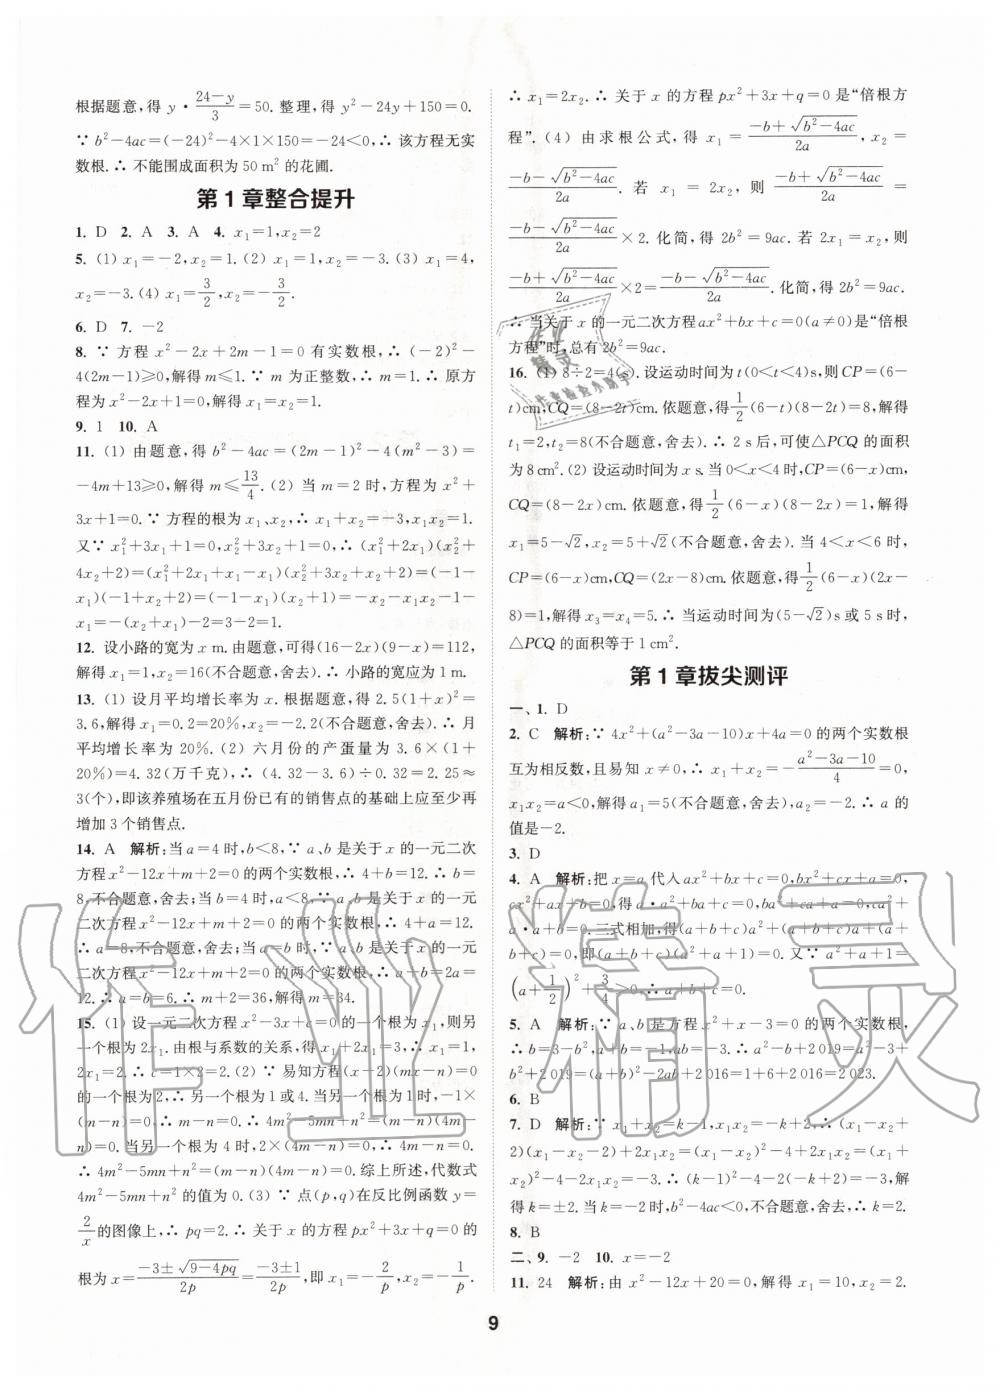 根据题意,得 y·(24-y)/3=50. 整理,得 y²-24y+150=0.
∵ b²-4ac=(-24)²-4×1×150=-24<0,∴ 该方程无实
数根.∴ 不能围成面积为 50 m² 的花圃.
第1章整合提升
1. D 2. A 3. A 4. x₁=1,x₂=2
5. (1) x₁=-2,x₂=1. (2) x₁=1,x₂=-3. (3) x₁=4,
x₂=-3. (4) x₁=3/2,x₂=-3/2.
6. D 7. -2
8. ∵ 方程 x²-2x+2m-1=0 有实数根,∴ (-2)²-
4(2m-1)≥0,解得 m≤1. ∵ m 为正整数,∴ m=1. ∴ 原方
程为 x²-2x+1=0,解得 x₁=x₂=1.
9. 1 10. A
11. (1) 由题意,得 b²-4ac=(2m-1)²-4(m²-3)=
-4m+13≥0,解得 m≤13/4. (2) 当 m=2 时,方程为 x²+
3x+1=0. ∵ 方程的根为 x₁、x₂,∴ x₁+x₂=-3,x₁x₂=1.
又∵ x₁²+3x₁+1=0,x₂²+3x₂+1=0,∴ (x₁²+2x₁)(x₂²+
4x₂+2)=(x₁²+2x₁+x₁-x₁)(x₂²+3x₂+x₂+2)=(-1-
x₁)(-1+x₂+2)=(-1-x₁)(x₂+1)=-x₂-x₁x₂-1-
x₁=-(x₂+x₁)-2=3-2=1.
12. 设小路的宽为 x m. 由题意,可得(16-2x)(9-x)=112,
解得 x₁=1,x₂=16(不合题意,舍去).∴ 小路的宽应为 1 m.
13. (1) 设月平均增长率为 x. 根据题意,得 2.5(1+x)²=
3.6,解得 x₁=0.2=20%,x₂=-2.2(不合题意,舍去).∴ 月
平均增长率为 20%. (2) 六月份的产蛋量为 3.6×(1+
20%)=4.32(万千克),∴ (4.32-3.6)÷0.32=2.25≈
3(个),即该养殖场在五月份已有的销售点的基础上应至少再
增加 3 个销售点.
14. A 解析:当 a=4 时,b<8,∵ a、b 是关于 x 的一元二次
方程 x²-12x+m+2=0 的两个实数根,∴ 4+b=12.∴ b=
8,不合题意,舍去;当 b=4 时,a<8,∵ a、b 是关于 x 的一元
二次方程 x²-12x+m+2=0 的两个实数根,∴ 4+a=12.
∴ a=8,不合题意,舍去;当 a=b 时,∵ a、b 是关于 x 的一元
二次方程 x²-12x+m+2=0 的两个实数根,∴ a+b=2a=
12.∴ a=b=6.∴ m+2=36.解得 m=34.
15. (1) 设一元二次方程 x²-3x+c=0 的一个根为 x₁,则另
一个根为 2x₁. 由根与系数的关系,得 x₁+2x₁=3,∴ x₁=1,
2x₁=2.∴ c=1×2=2. (2) ∵ 易知方程(x-2)(mx-n)=0
的一个根为2,∴ 另一个根为1或4. 当另一个根为1时,m-n=0.
∴ m=n. ∴ 4m²-5mn+n²=(m-n)(4m-
n)=0. 当另一个根为 4 时,2×(4m-n)=0,∴ 4m-n=0.
∴ 4m²-5mn+n²=(m-n)(4m-n)=0. 综上所述,代数式
4m²-5mn+n² 的值为 0. (3) ∵ 点(p,q)在反比例函数 y=
2/x 的图像上,∴ pq=2. ∴ 关于 x 的方程 px²+3x+q=0 的
根为 x=(-3±√(9-4pq))/2p=(-3±1)/2p,即 x₁=-2/p,x₂=-1/p.
∴ x₁=2x₂. ∴ 关于 x 的方程 px²+3x+q=0 是“倍根方
程”. (4) 由求根公式,得 x₁=(-b+√(b²-4ac))/2a,x₂=
(-b-√(b²-4ac))/2a. 若 x₁=2x₂,则 (-b+√(b²-4ac))/2a =
(-b-√(b²-4ac))/2a×2. 化简,得 2b²=9ac. 若 2x₁=x₂,则
(-b+√(b²-4ac))/2a×2=(-b-√(b²-4ac))/2a. 化简,得 2b²=9ac.
∴ 当关于 x 的一元二次方程 ax²+bx+c=0(a≠0)是“倍根
方程”时,总有 2b²=9ac.
16. (1) 8÷2=4(s). 设运动时间为 t(0<t<4)s,则 CP=(6-
t)cm,CQ=(8-2t)cm. 依题意,得 1/2(6-t)(8-2t)=8,解得
t₁=2,t₂=8(不合题意,舍去).∴ 2 s 后,可使△PCQ 的面积
为 8 cm². (2) 设运动时间为 x s. 当 0<x<4 时,CP=(6-x)cm,
CQ=(8-2x)cm. 依题意,得 1/2(6-x)(8-2x)=1,解得
x₁=5-√2,x₂=5+√2(不合题意,舍去). 当 4<x<6 时,
CP=(6-x)cm,CQ=(2x-8)cm. 依题意,得 1/2(6-x)(2x-
8)=1,解得 x₃=x₄=5.∴ 当运动时间为(5-√2)s 或 5 s 时,
△PCQ 的面积等于 1 cm².
第1章拔尖测评
一、1. D
2. C 解析:∵ 4x²+(a²-3a-10)x+4a=0 的两个实数根
互为相反数,且易知 x≠0,∴ x₁+x₂=-(a²-3a-10)/4=0,
x₁x₂=a<0,解得 a₁=5(不合题意,舍去),a₂=-2.∴ a 的
值是-2.
3. D
4. A 解析:把 x=a 代入 ax²+bx+c=0,bx²+cx+a=0,
cx²+ax+b=0,得 a·a²+ba+c=0,ba²+ca+a=0,ca²+
a·a+b=0. 三式相加,得(a+b+c)a²+(b+c+a)a+(a+
b+c)=0,即(a+b+c)(a²+a+1)=0. 又∵ a²+a+1=
(a+1/2)²+3/4>0,∴ a+b+c=0.
5. A 解析:∵ a、b 是方程 x²+x-3=0 的两个实数根,
∴ b=3-b²,a+b=-1,ab=-3.∴ a²-b+2 019=a²-3+
b²+2 019=(a+b)²-2ab+2016=1+6+2 016=2 023.
6. B
7. D 解析:∵ x₁+x₂=k-1,x₁x₂=-k+2,∴ (x₁-x₂+
2)(x₁-x₂-2)+2x₁x₂=(x₁-x₂)²-4+2x₁x₂=(x₁+
x₂)²-2x₁x₂-4=-3.∴ (k-1)²-4-2(-k+2)=-3. 解
得 k=±2. 当 k=-2 时,b²-4ac<0,不合题意,舍去,∴ k=2.
8. B
二、9. -2 10. x=-2
11. 24 解析:由 x²-12x+20=0,解得 x₁=10,x₂=2.
9